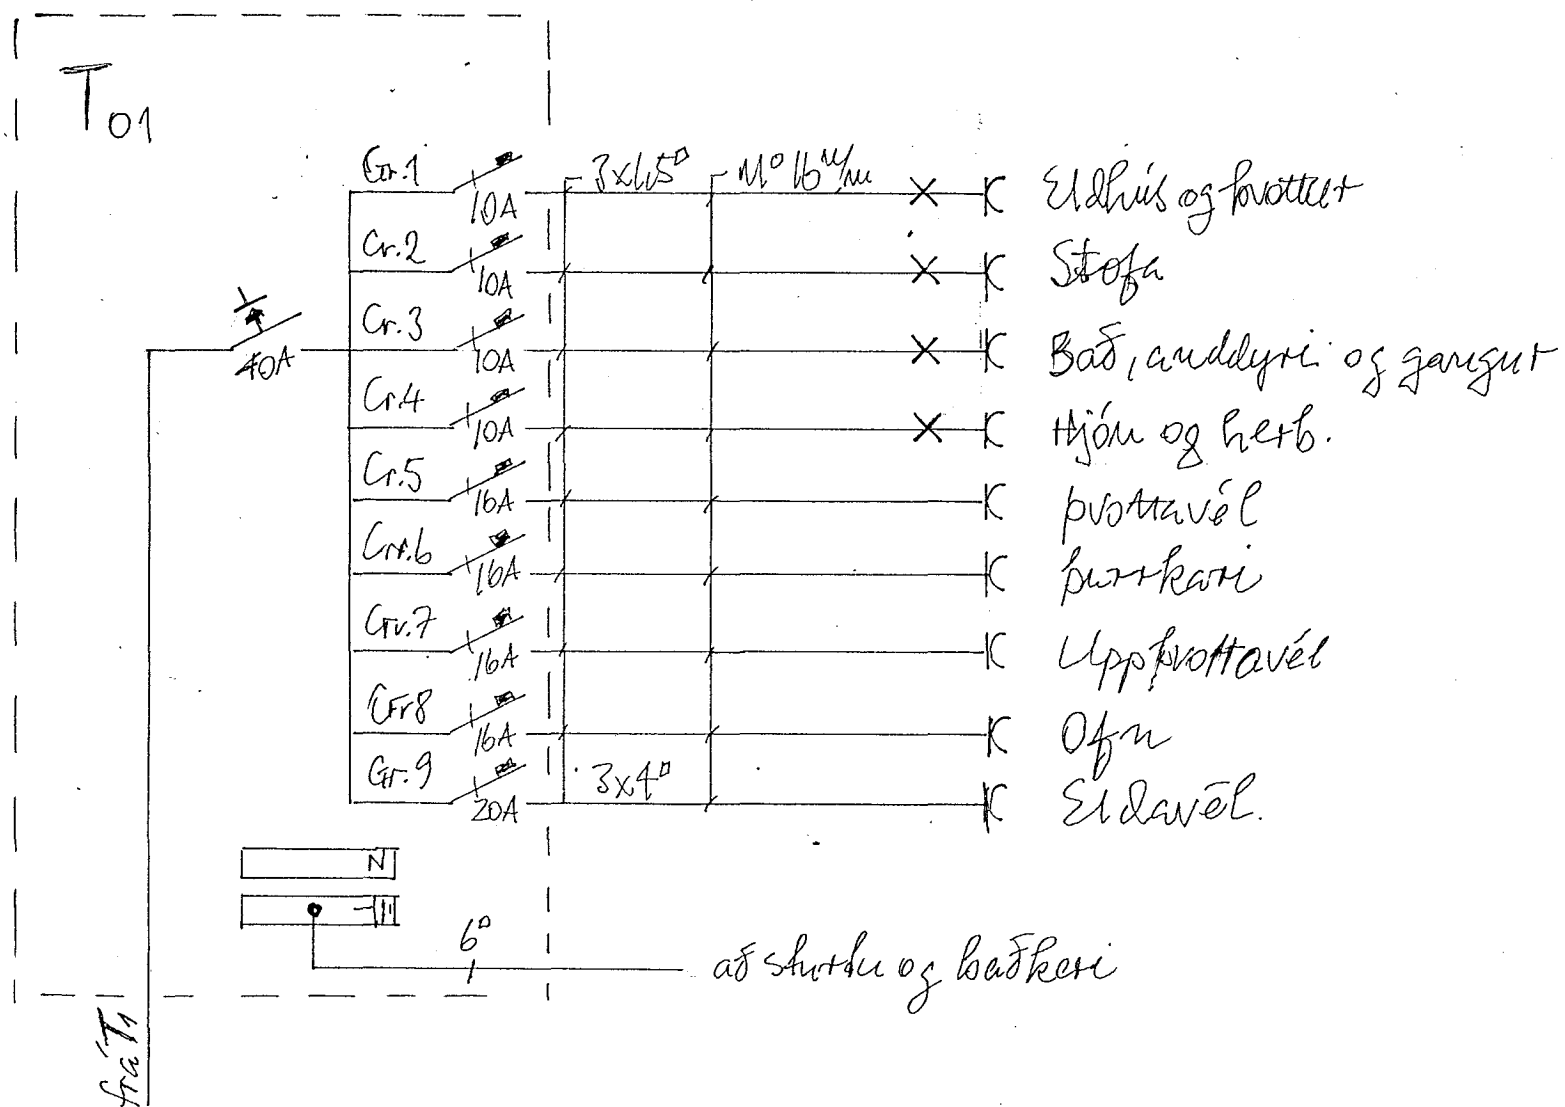 T01
Gr.1 10A 3x1,5▫ M° 16 m/m Eldhús og þvottur
Gr.2 10A Stofa
Gr.3 10A Bað, anddyri og gangur
40A
Gr.4 10A Hjón og herb.
Gr.5 16A þvottavél
Gr.6 16A þurrkari
Gr.7 16A Uppþvottavél
Gr8 16A Ofn
Gr.9 20A 3x4▫ Eldavél.
N
6▫ að sturtu og baðkeri
frá T1